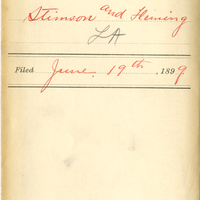 Stimson and Fleming
LA
Filed June. 19th, 1899.